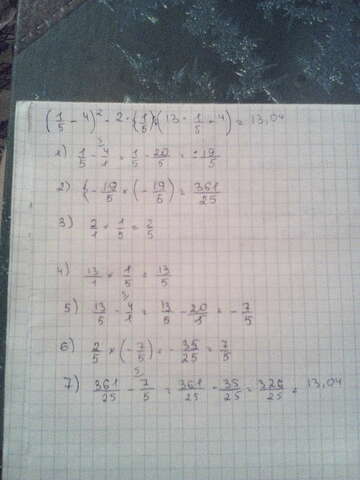 (1/5 - 4)² - 2 · (1/5) · (13 · 1/5 - 4) = 13,04
1) 1/5 - 4/1 = 1/5 - 20/5 = -19/5
2) (-19/5 × (-19/5) = 361/25
3) 2/1 × 1/5 = 2/5
4) 13/1 × 1/5 = 13/5
5) 13/5 - 4/1 = 13/5 - 20/1 = -7/5
6) 2/5 × (-7/5) = -35/25 = 7/5
7) 361/25 - 7/5 = 361/25 - 35/25 = 326/25 = 13,04